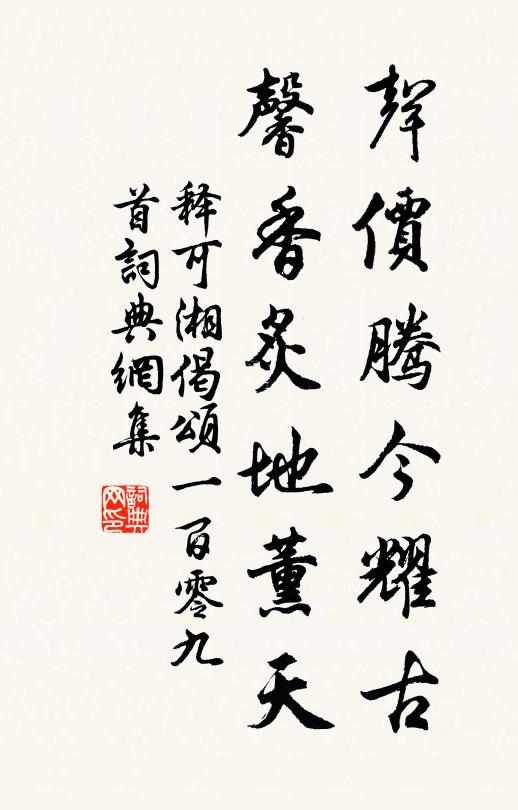 聲價騰今耀古
馨香炙地薰天
释可湘偈頌一百零九
首詞典網集
詞典网印